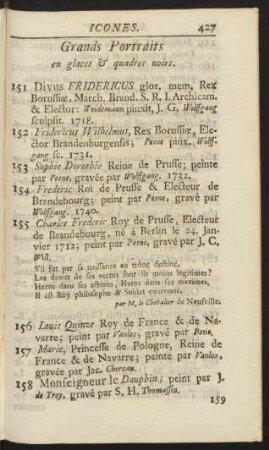 ICONES. 427
Grands Portraits
en glaces & quadres noirs.
151 Divus FRIDERICUS glor. mem, Rex
Borussiæ, March. Brand. S. R. I. Archicam.
& Elector: Weidemann pinxit, J. G. Wolffgang
sculpsit. 1718.
152 Fridericus Wilhelmus, Rex Borussiæ, Ele-
ctor Brandenburgensis; Pesne pinx. Wolff-
gang sc. 1731.
153 Sophie Dorothée Reine de Prusse; peinte
par Pesne, gravée par Wolffgang. 1732.
154 Frederic Roi de Prusse & Electeur de
Brandebourg; peint par Pesne, gravé par
Wolffgang. 1740.
155 Charles Frederic Roy de Prusse, Electeur
de Brandebourg, né à Berlin le 24. Jan-
vier 1712; peint par Pesne, gravé par J. C.
Will,
S'il fut par sa naissance au trône destiné,
Les droits de ses vertus sont ils moins legitimes?
Heros dans ses actions, Heros dans ses maximes,
Il est Roy philosophe & Soldat couronné.
par M. le Chevalier de Neufville.
156 Louis Quinze Roy de France & de Na-
varre; peint par Vanloo, gravé par Petit.
157 Marie, Princesse de Pologne, Reine de
France & de Navarre; peinte par Vanloo,
gravée par Jac. Chereau.
158 Monseigneur le Dauphin; peint par J.
de Troy, gravé par S. H. Thomassin.
159